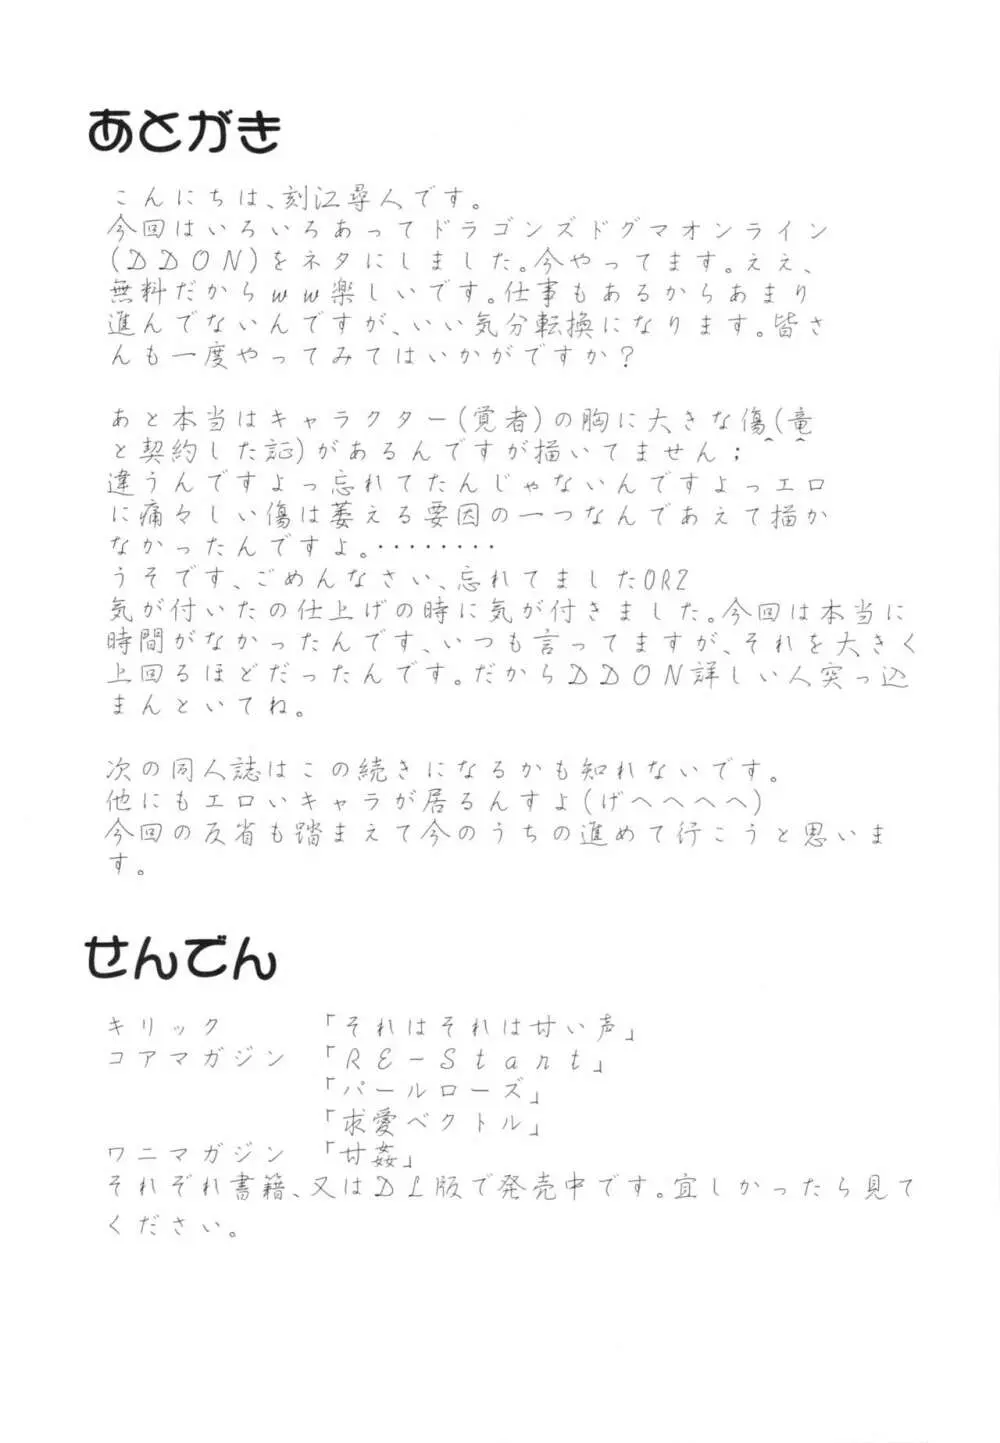 あとがき
こんにちは、刻江尋人です。
今回はいろいろあってドラゴンズドグマオンライン
(DDON)をネタにしました。今やってます。ええ、
無料だからww楽しいです。仕事もあるからあまり
進んでないんですが、いい気分転換になります。皆さ
んも一度やってみてはいかがですか?
あと本当はキャラクター(覚者)の胸に大きな傷(竜
と契約した証)があるんですが描いてません;^^
違うんですよっ忘れてたんじゃないんですよっエロ
に痛々しい傷は萎える要因の一つなんであえて描か
なかったんですよ。········
うそです、ごめんなさい、忘れてましたORZ
気が付いたの仕上げの時に気が付きました。今回は本当に
時間がなかったんです、いつも言ってますが、それを大きく
上回るほどだったんです。だからDDON詳しい人突っ込
まんといてね。
次の同人誌はこの続きになるかも知れないです。
他にもエロいキャラが居るんすよ(げへへへへ)
今回の反省も踏まえて今のうちの進めて行こうと思いま
す。
せんでん
キリック 「それはそれは甘い声」
コアマガジン 「RE-Start」
「パールローズ」
「求愛ベクトル」
ワニマガジン 「甘姦」
それぞれ書籍、又はDL版で発売中です。宜しかったら見て
ください。